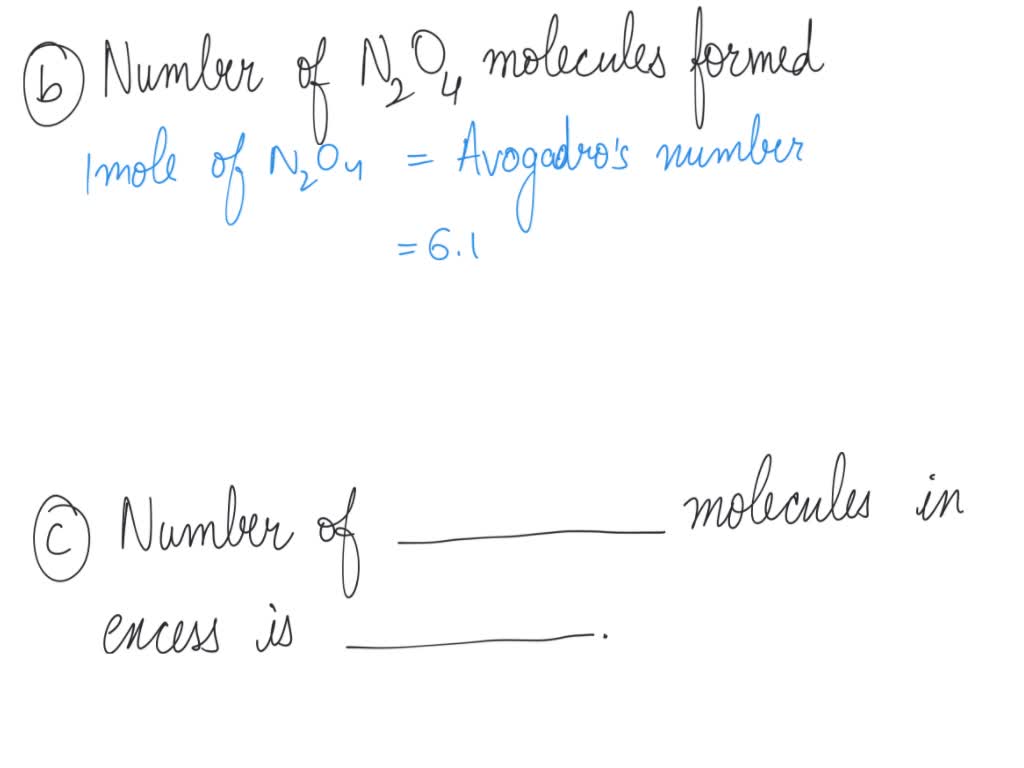 b Number of N₂O₄ molecules formed
1mole of N₂O₄ = Avogadro's number
= 6.1
c Number of ________ molecules in
encess is ________.